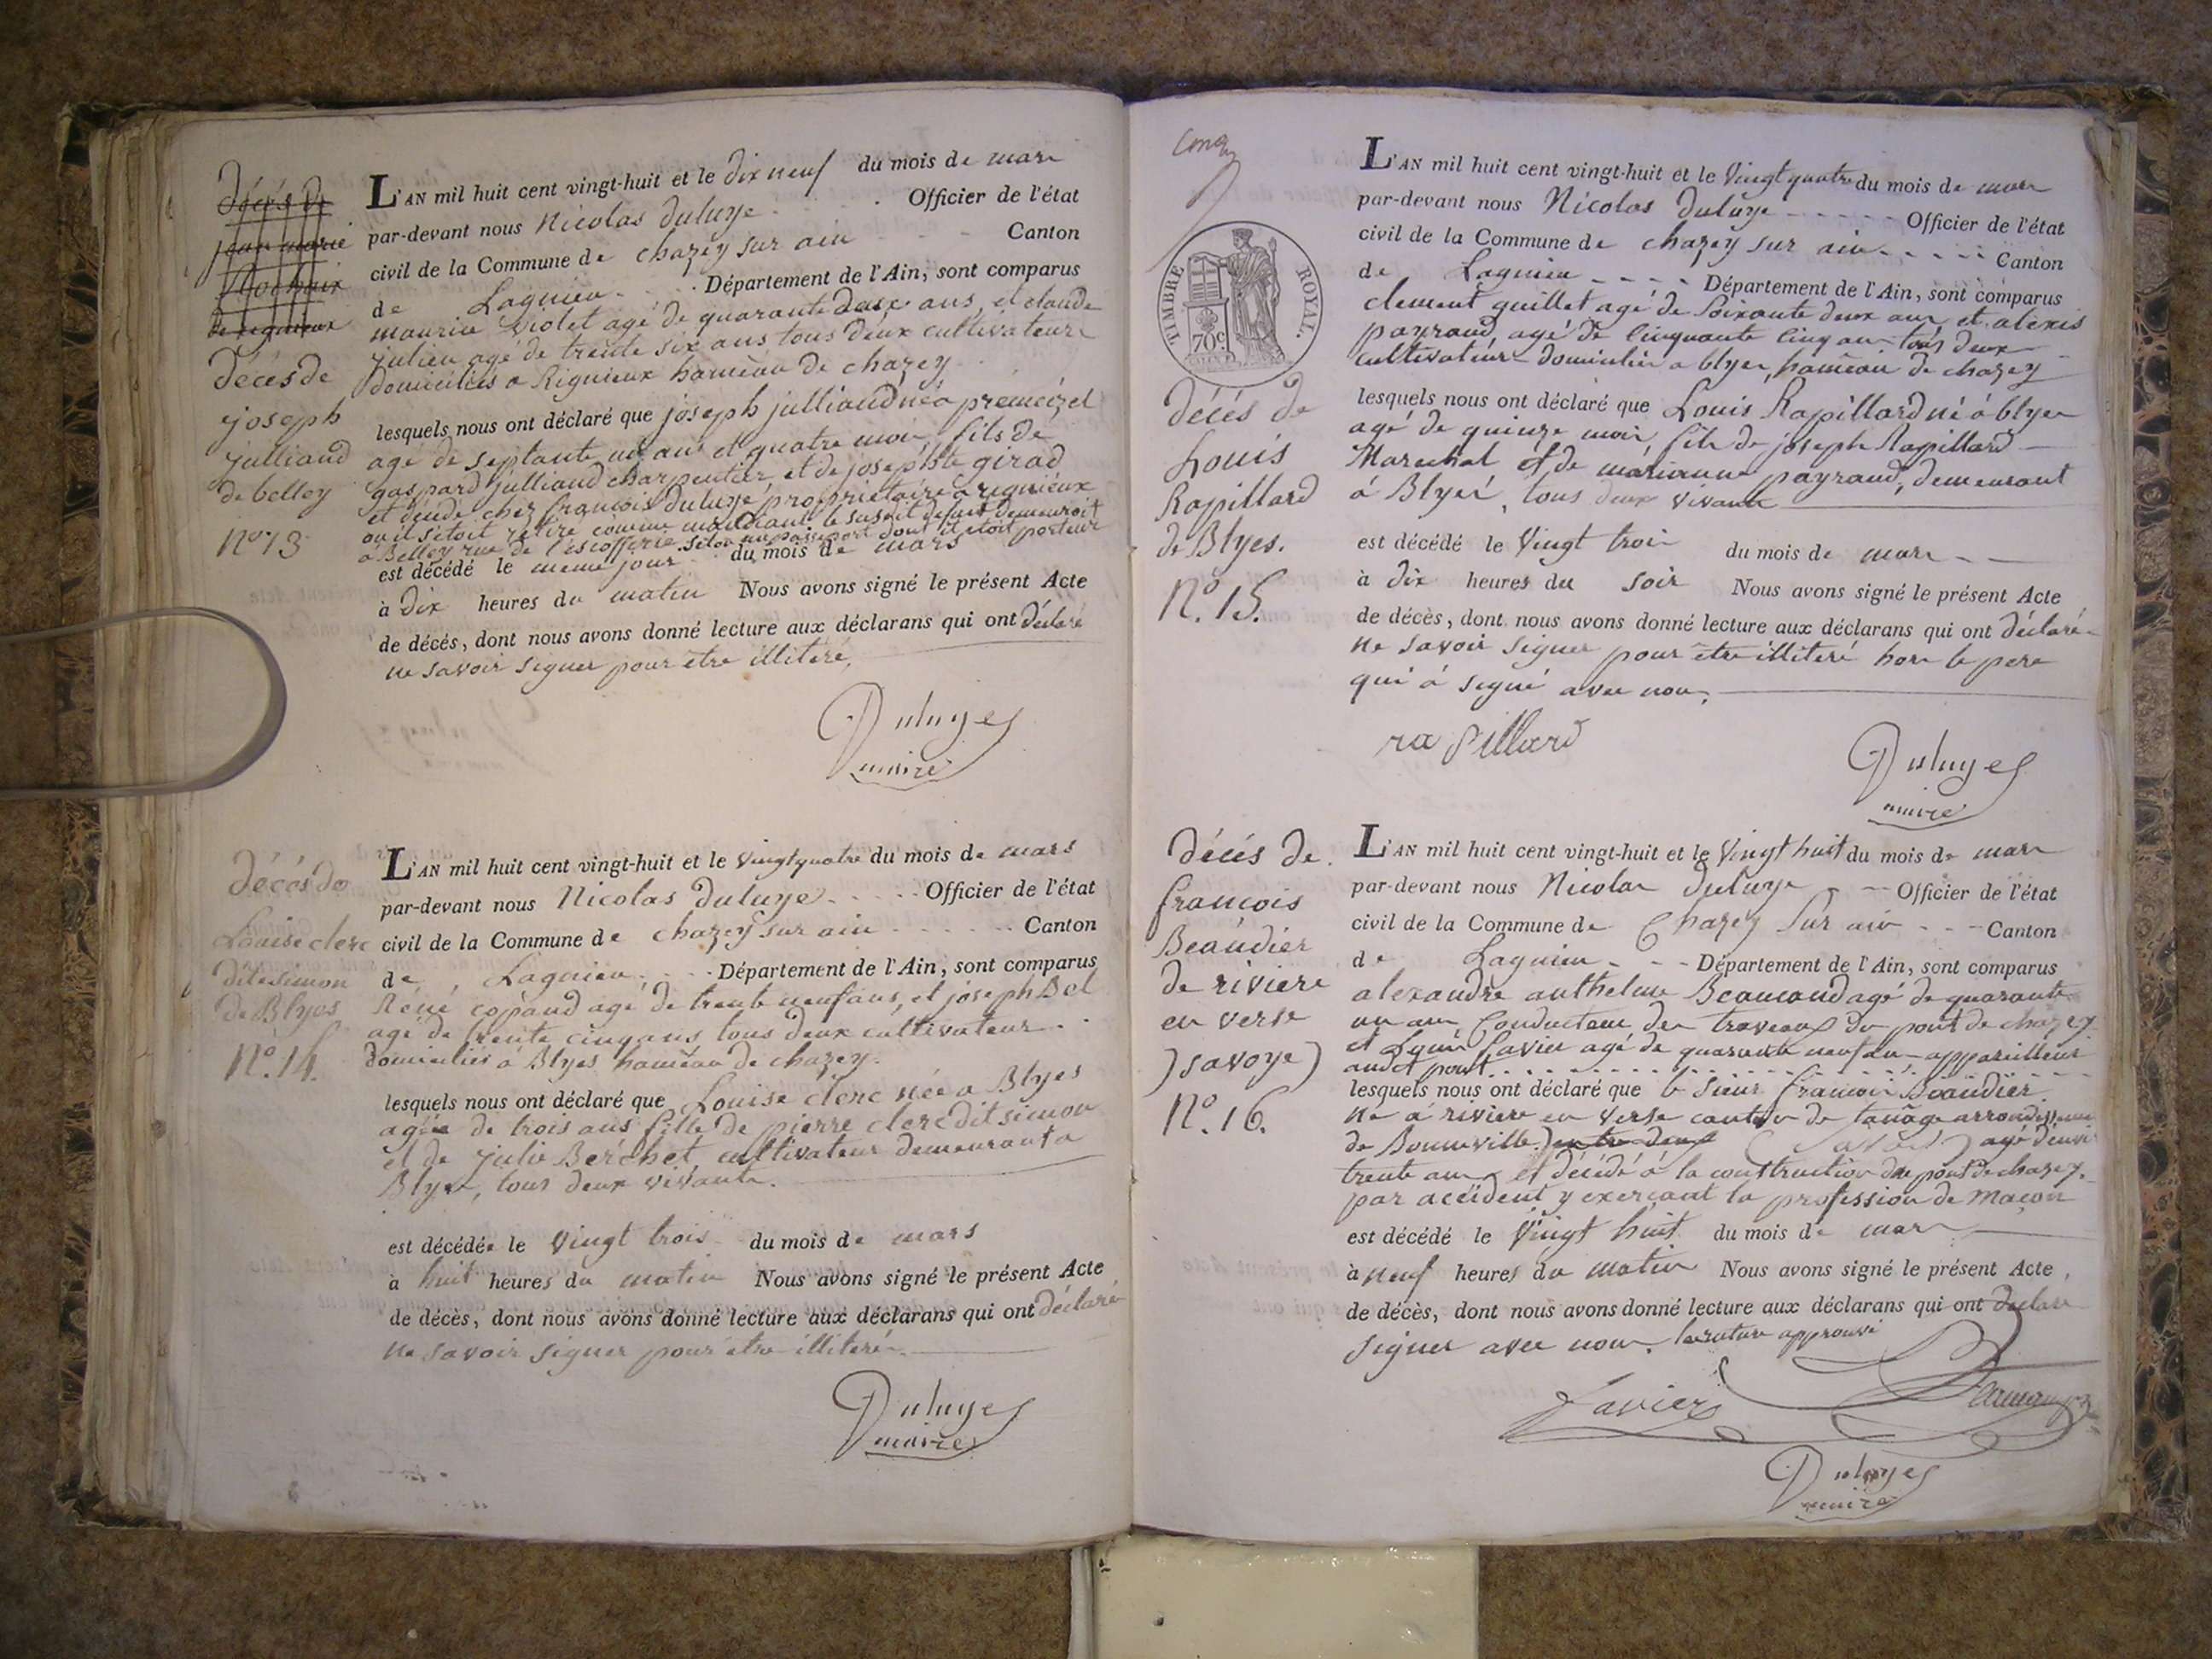 décès de
jean marie
de regnieux
décès de
joseph
julliand
de belley
N° 13
L'AN mil huit cent vingt-huit et le dix neuf du mois de mars
par-devant nous Nicolas duluye Officier de l'état
civil de la Commune de chazey sur ain Canton
de Lagnieu Département de l'Ain, sont comparus
maurice Violet agé de quarante deux ans, et claude
julien agé de trente six ans tous deux cultivateurs
domiciliés a Rignieux hameau de chazey
lesquels nous ont déclaré que joseph julliand né a premeizel
agé de septante un ans et quatre mois, fils de
gaspard julliand charpentier, et de josephte girad
et decede chez françois duluye propriétaire a regnieux
ou il s'étoit retiré comme mandiant le susdit defunt demeuroit
a Belley rue de l'escofferie selon un passeport dont il étoit porteur
est décédé le meme jour du mois de mars
à dix heures du matin Nous avons signé le présent Acte
de décés, dont nous avons donné lecture aux déclarans qui ont déclaré
ne savoir signer pour etre illiteré,
Duluye
maire
décés de
Louise clerc
dite simon
de Blyes
N°. 14.
L'AN mil huit cent vingt-huit et le vingt quatre du mois de mars
par-devant nous Nicolas duluye Officier de l'état
civil de la Commune de chazey sur ain Canton
de Lagnieu Département de l'Ain, sont comparus
René copand agé de trente neuf ans, et joseph Bel
agé de trente cinq ans, tous deux cultivateur
domiciliés à Blyes hameau de chazey.
lesquels nous ont déclaré que Louise clerc née a Blyes
agée de trois ans fille de pierre clerc dit simon
et de julie Berchet cultivateur demeurant a
Blyes, tous deux vivants.
est décédée le Vingt trois du mois de mars
à huit heures du matin Nous avons signé le présent Acte
de décès, dont nous avons donné lecture aux déclarans qui ont déclaré
ne savoir signer pour etre illiteré.
Duluye
maire
TIMBRE ROYAL.
70c
décés de
Louis
Rapillard
de Blyes.
N°. 15.
L'AN mil huit cent vingt-huit et le Vingt quatre du mois de mars
par-devant nous Nicolas duluye Officier de l'état
civil de la Commune de chazey sur ain Canton
de Lagnieu Département de l'Ain, sont comparus
clement guillet agé de soixante deux ans et alexis
payraud, agé de cinquante cinq ans tous deux
cultivateurs domiciliés a blyes, hameau de chazey
lesquels nous ont déclaré que Louis Rapillard né á blyes
agé de quinze mois, fils de joseph Rapillard
Marechal et de marianne payraud, demeurant
á Blyes, tous deux vivants
est décédé le Vingt trois du mois de mars
à dix heures du soir Nous avons signé le présent Acte
de décès, dont nous avons donné lecture aux déclarans qui ont déclaré
ne savoir signer pour etre illiteré hors le pere
qui á signé avec nous.
ra pillard
Duluye
maire
décés de
françois
Beaudier
de riviere
en verse
)savoye)
N°. 16.
L'AN mil huit cent vingt-huit et le Vingt huit du mois de mars
par-devant nous Nicolas duluye Officier de l'état
civil de la Commune de Chazey Sur ain Canton
de Lagnieu Département de l'Ain, sont comparus
alexandre anthelme Beaucand agé de quarante
un ans, Conducteur des traveaux du pont de chazey
et Lavier agé de quarante neuf ans appareilleur
audit pont
lesquels nous ont déclaré que le sieur françois Beaudier
né a riviere en verse canton de taninge arrondissement
de Bonneville) entre deux (Savoie) agé d'envi
trente ans, et décédé à la construction du pont de chazey.
par accident y exerçant la profession de maçon
est décédé le Vingt huit du mois de mars
à neuf heures du matin Nous avons signé le présent Acte
de décès, dont nous avons donné lecture aux déclarans qui ont déclaré
signer avec nous. la rature approuvé
Lavier
Duluye
maire